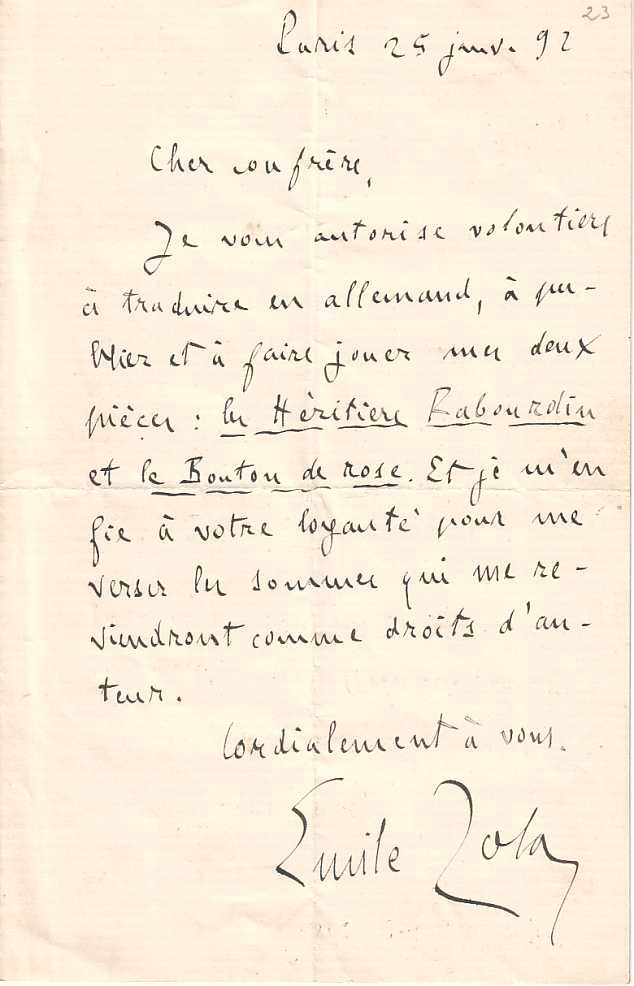 23
Paris 25 janv. 92
Cher confrère,
Je vous autorise volontiers
à traduire en allemand, à pu-
blier et à faire jouer mes deux
pièces : les Héritiers Rabourdin
et le Bouton de rose. Et je m'en
fie à votre loyauté pour me
verser les sommes qui me re-
viendront comme droits d'au-
teur.
Cordialement à vous.
Emile Zola